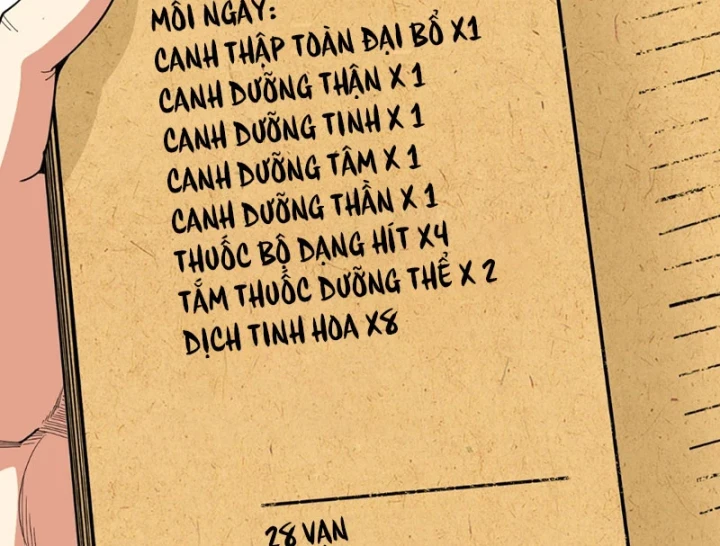 MỖI NGÀY:
CANH THẬP TOÀN ĐẠI BỔ X1
CANH DƯỠNG THẬN X 1
CANH DƯỠNG TINH X 1
CANH DƯỠNG TÂM X 1
CANH DƯỠNG THẦN X 1
THUỐC BỘ DẠNG HÍT X4
TẮM THUỐC DƯỠNG THỂ X 2
DỊCH TINH HOA X8
28 VẠN